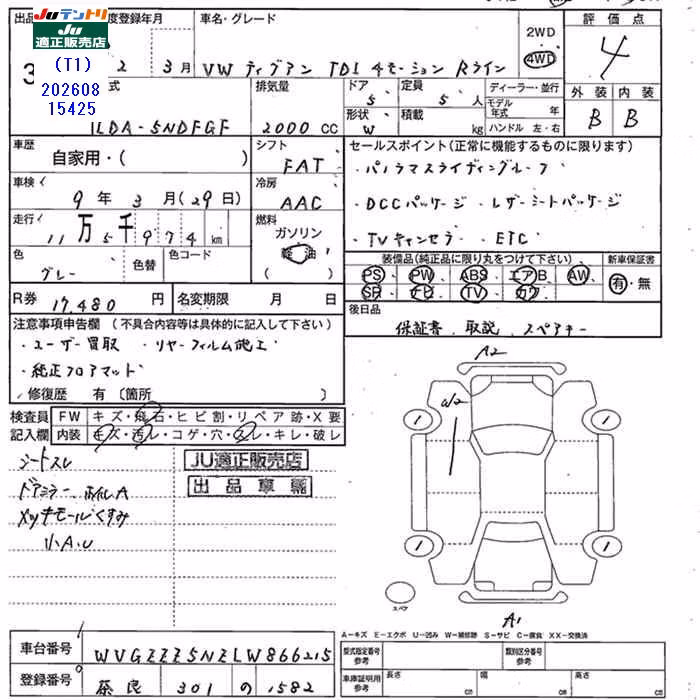 JUテントリ
JU
適正販売店
(T1)
202608
15425
出品
度登録年月
車名・グレード
2WD
4WD
評価点
4
2 3月
VW ティグアン TDI 4モーション Rライン
外装 内装
B B
式
3LDA-5NDFGF
排気量
2000 CC
ドア
5
定員
5 人
形状
W
積載
kg
ディーラー・並行
モデル年式 年
ハンドル 左・右
車歴
自家用・( )
シフト
FAT
車検
9年3月(29日)
冷房
AAC
走行
11万5千974km
燃料
ガソリン
軽油
( )
色
グレー
色替
色コード
R券
17,480円
名変期限 月 日
セールスポイント(正常に機能するものに限ります)
・パノラマスライディングルーフ
・DCCパッケージ ・レザーシートパッケージ
・TVキャンセラ ・ETC
装備品(純正品に限り丸をつけて下さい)
PS PW ABS エアB AW
SR ナビ TV カワ
新車保証書
有・無
後日品
保証書 取説 スペアキー
注意事項申告欄(不具合内容等は具体的に記入して下さい)
・ユーザー買取 ・リヤーフィルム施工
・純正フロアマット
・修復歴 有(箇所 )
検査員
記入欄
FW キズ・飛石・ヒビ割・リペア跡・X要
内装 キズ・汚レ・コゲ・穴・スレ・キレ・破レ
シートスレ
ドアミラー、ホイルA
メッキモールくすみ
小A.U
JU適正販売店
出品車輌
A2
W2
1
1
1
1
スペア
A1
A-キズ E-エクボ U-凹み W-補修跡 S-サビ C-腐食 XX-交換済
車台番号
WVGZZZ5NZLW866215
登録番号
奈良 301 の 1582
型式指定番号
参考
類別区分番号
参考
車庫証明用
参考
長さ cm
幅 cm
高さ cm